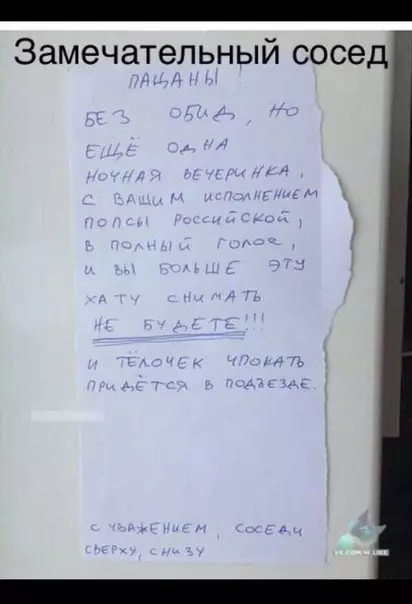 Замечательный сосед
ПАЦАНЫ!
БЕЗ ОБИД, НО
ЕЩЁ ОДНА
НОЧНАЯ ВЕЧЕРИНКА,
С ВАШИМ ИСПОЛНЕНИЕМ
ПОПСЫ РОССИЙСКОЙ,
В ПОЛНЫЙ ГОЛОС,
И ВЫ БОЛЬШЕ ЭТУ
ХАТУ СНИМАТЬ
НЕ БУДЕТЕ!!!
И ТЁЛОЧЕК ЧПОКАТЬ
ПРИДЁТСЯ В ПОДЪЕЗДЕ.
С УВАЖЕНИЕМ, СОСЕДИ
СВЕРХУ, СНИЗУ
VK.COM/W_LIKE